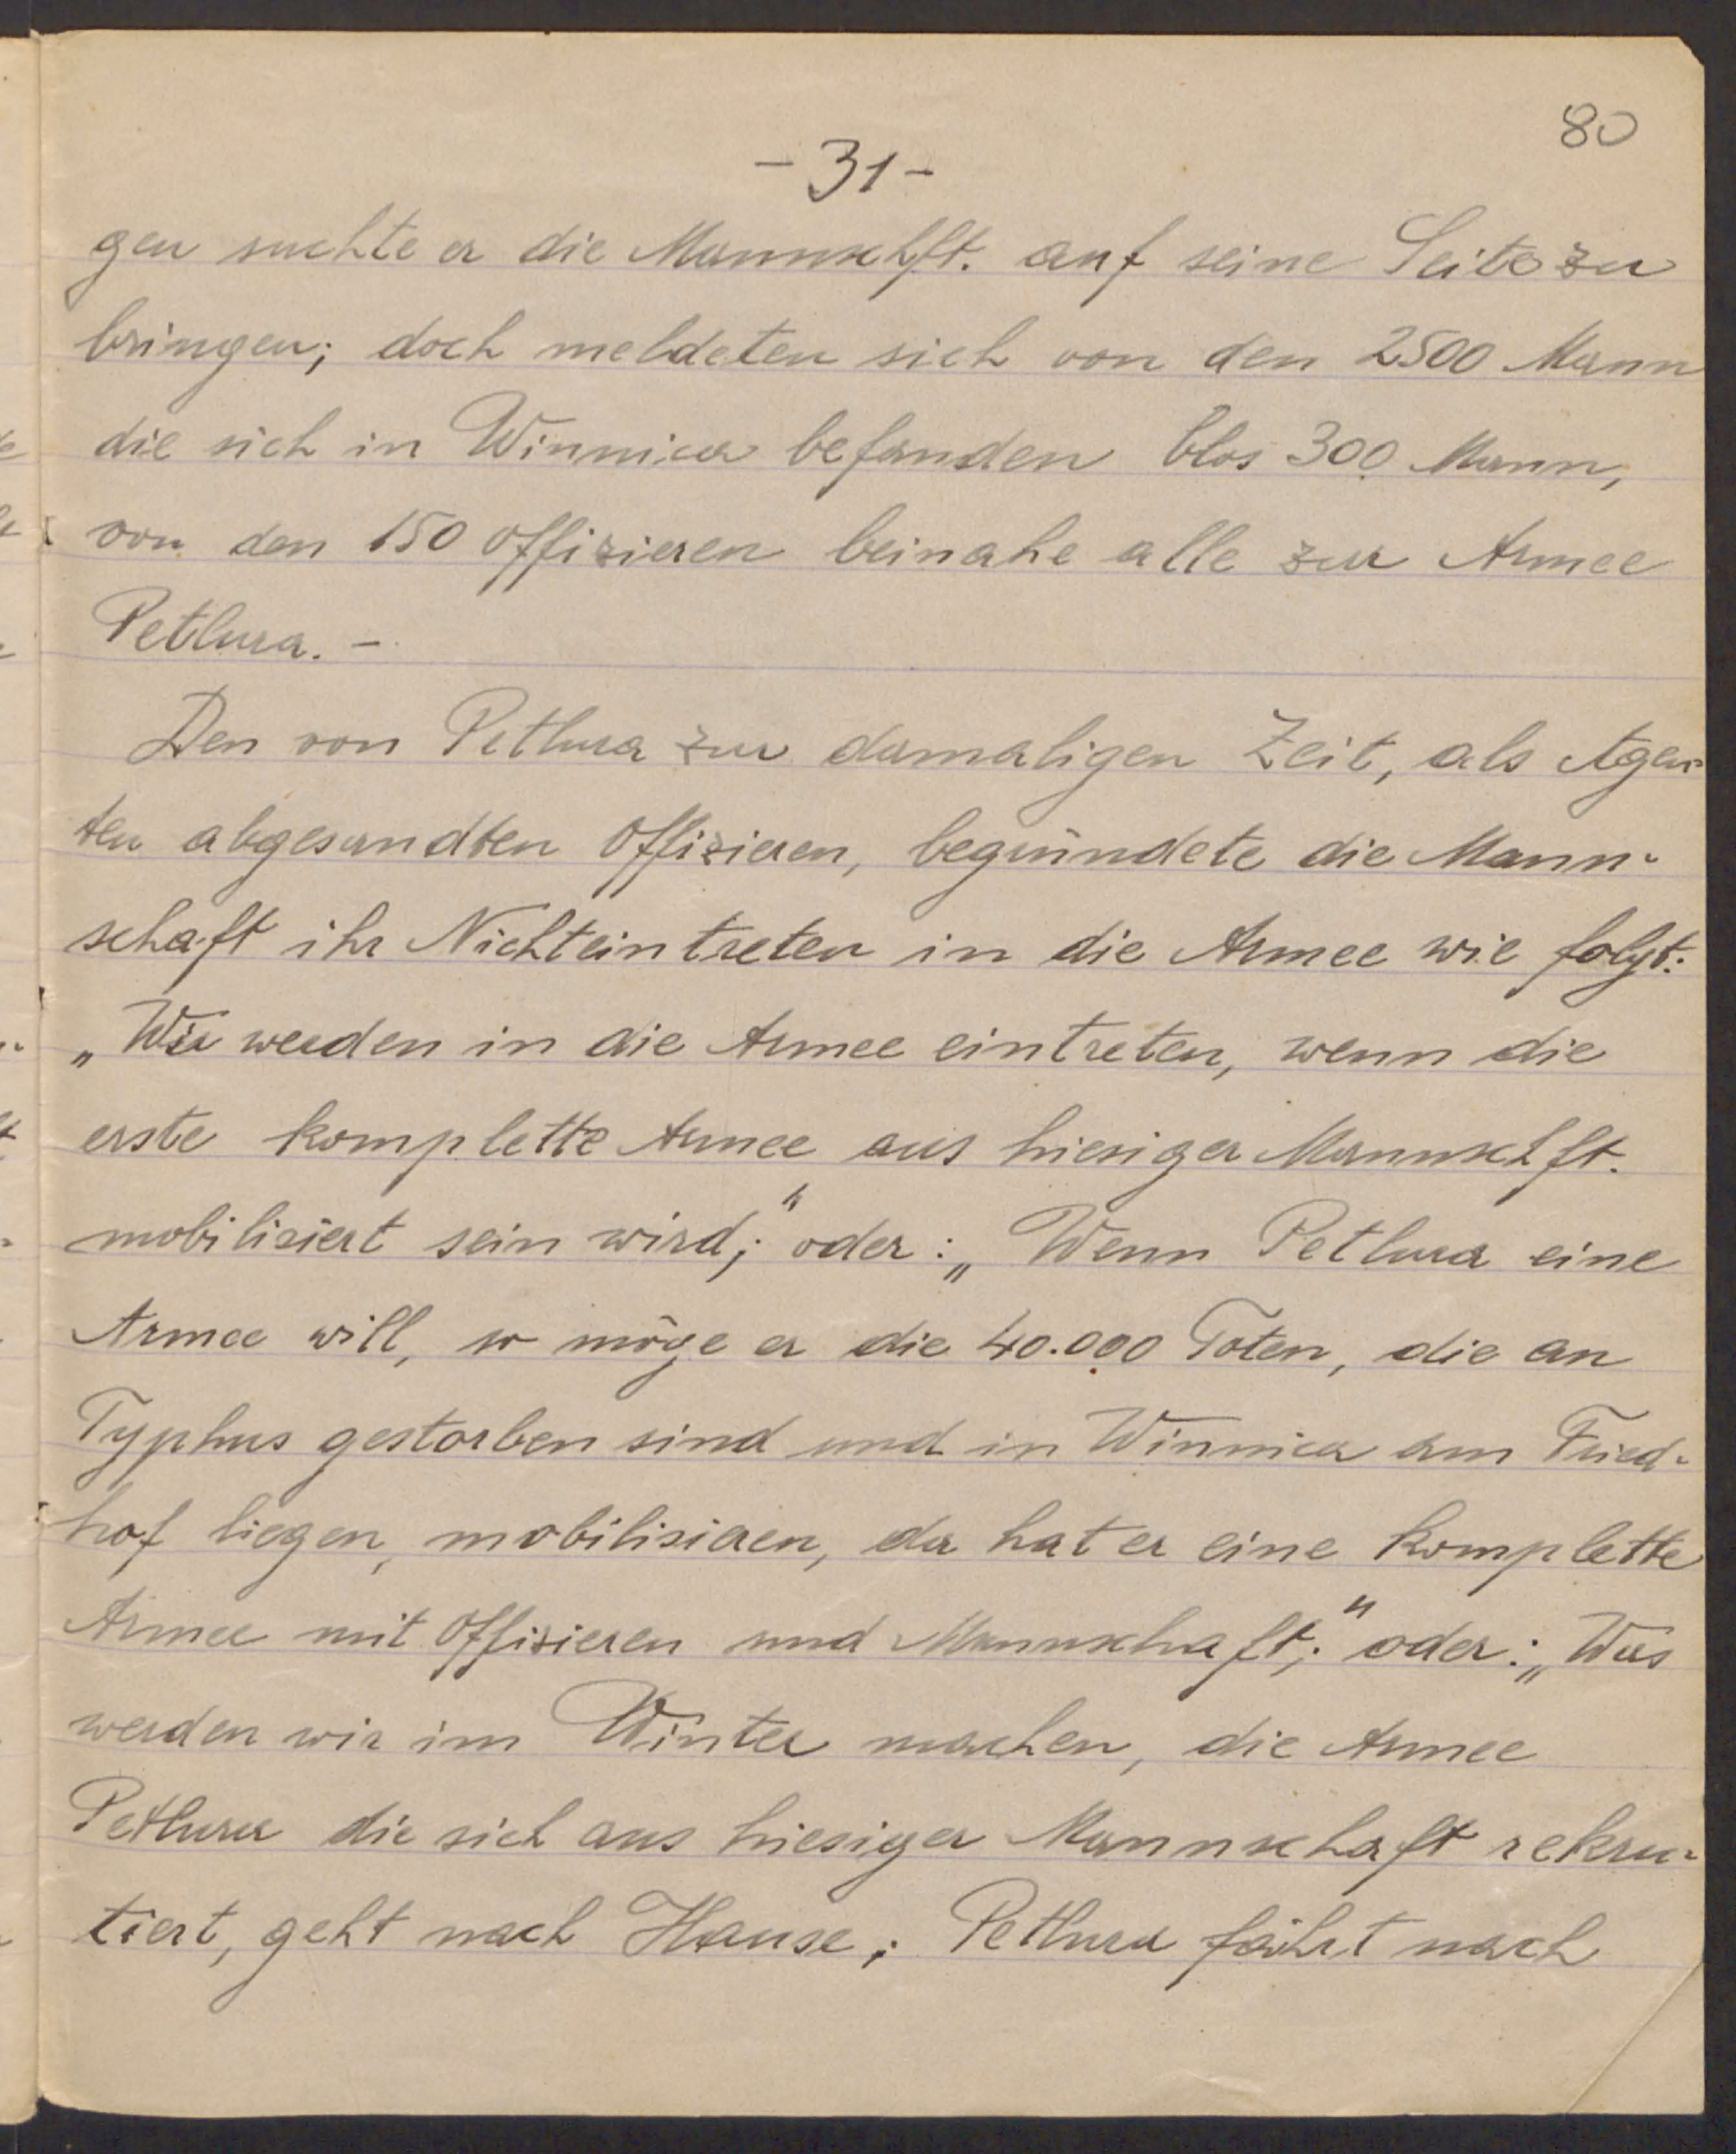 80
- 31 -
gen suchte er die Mannschft. auf seine Seite zu
bringen; doch meldeten sich von den 2500 Mann
die sich in Winnica befanden blos 300 Mann,
von den 150 Offizieren beinahe alle zur Armee
Petlura. -
Den von Petlura zur damaligen Zeit, als Agen-
ten abgesandten Offizieren, begründete die Mann-
schaft ihr Nichteintreten in die Armee wie folgt:
„Wir werden in die Armee eintreten, wenn die
erste komplette Armee aus hiesiger Mannschft.
mobilisiert sein wird;" oder: „Wenn Petlura eine
Armee will, so möge er die 40.000 Toten, die an
Typhus gestorben sind und in Winnica am Fried-
hof liegen, mobilisieren, da hat er eine komplette
Armee mit Offizieren und Mannschaft;" oder: „Was
werden wir im Winter machen, die Armee
Petlura die sich aus hiesiger Mannschaft rekru-
tiert, geht nach Hause; Petlura fährt nach